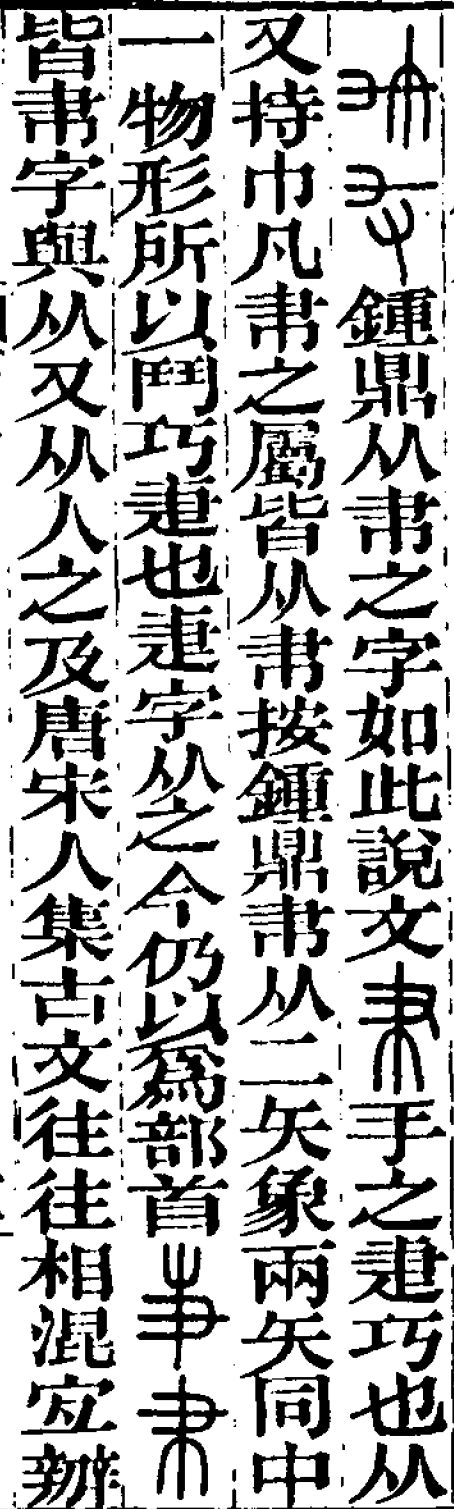 鍾鼎从帇之字如此說文手之疌巧也从
又持巾凡帇之屬皆从帇按鍾鼎帇从二矢象兩矢同中
一物形所以鬥巧疌也疌字从之今仍以爲部首
皆帇字與从又从人之及唐宋人集古文往往相混宐辧